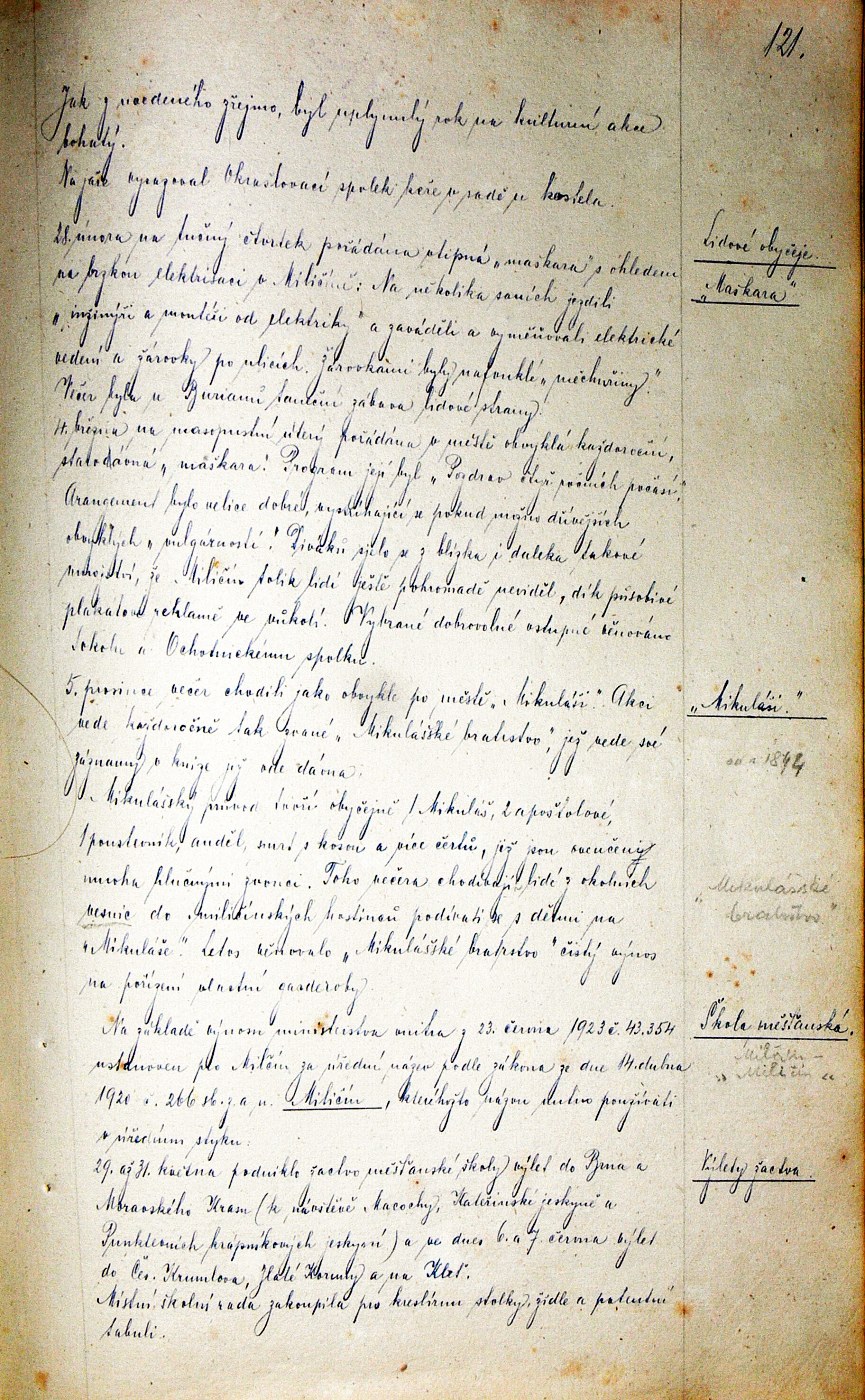 121.
Jak z uvedeného zřejmo, byl uplynulý rok na kulturní akce
bohatý.
Na jaře vysazoval Okrašlovací spolek keře v sadě u kostela.
28. února na tučný čtvrtek pořádána vtipná „maškara" s ohledem
Lidové obyčeje.
na brzkou elektrisaci v Miličíně: Na několika saních jezdili
„Maškara"
„inžinýři a montéři od elektriky" a zaváděli a vyměňovali elektrické
vedení a žárovky po ulicích. Žárovkami byly nafouklé „měchuřiny."
Večer byla u Burianů taneční zábava lidové strany.
4. března na masopustní úterý pořádána v městě obvyklá každoroční,
starodávná „maškara." Program její byl „Pozdrav čtyř ročních počasí."
Arangement bylo velice dobré, vystříhající se pokud možno dřívějších
obvyklých „vulgárností". Diváků sjelo se z blízka i daleka takové
množství, že Miličín tolik lidí ještě pohromadě neviděl, dík působivé
plakátové reklamě ve vůkolí. Vybrané dobrovolné vstupné věnováno
Sokolu a Ochotnickému spolku.
5. prosince večer chodili jako obvykle po městě „Mikuláši". Akci
„Mikuláši."
vede každoročně tak zvané „Mikulášské bratrstvo", jež vede své
záznamy v knize již ode dávna.
od r. 1844
Mikulášský průvod tvoří obyčejně 1 Mikuláš, 2 apoštolové,
1 poustevník, anděl, smrt s kosou a více čertů, jež jsou ověnčeni
mnoha hlučnými zvonci. Toho večera chodívají lidé z okolních
„Mikulášské
bratrstvo"
vesnic do miličínských hostinců podívati se s dětmi na
„Mikuláše". Letos věnovalo „Mikulášské bratrstvo" čistý výnos
na pořízení vlastní garderoby.
Na základě výnosu ministerstva vnitra z 23. června 1923 č. 43.354
Škola měšťanská.
ustanoven pro Milčín za úřední název podle zákona ze dne 14. dubna
Milčín –
„Miličín"
1920 č. 266 sb. z. a n. Miličín, kteréhožto názvu nutno používati
v úředním styku.
29. až 31. května podniklo žactvo měšťanské školy výlet do Brna a
Výlety žactva.
Moravského Krasu (k návštěvě Macochy, Kateřinské jeskyně a
Punkevních krápníkových jeskyní) a ve dnech 6. a 7. června výlet
do Čes. Krumlova, Zlaté Koruny a na Kleť.
Místní školní rada zakoupila pro kreslírnu stolky, židle a patentní
tabuli.